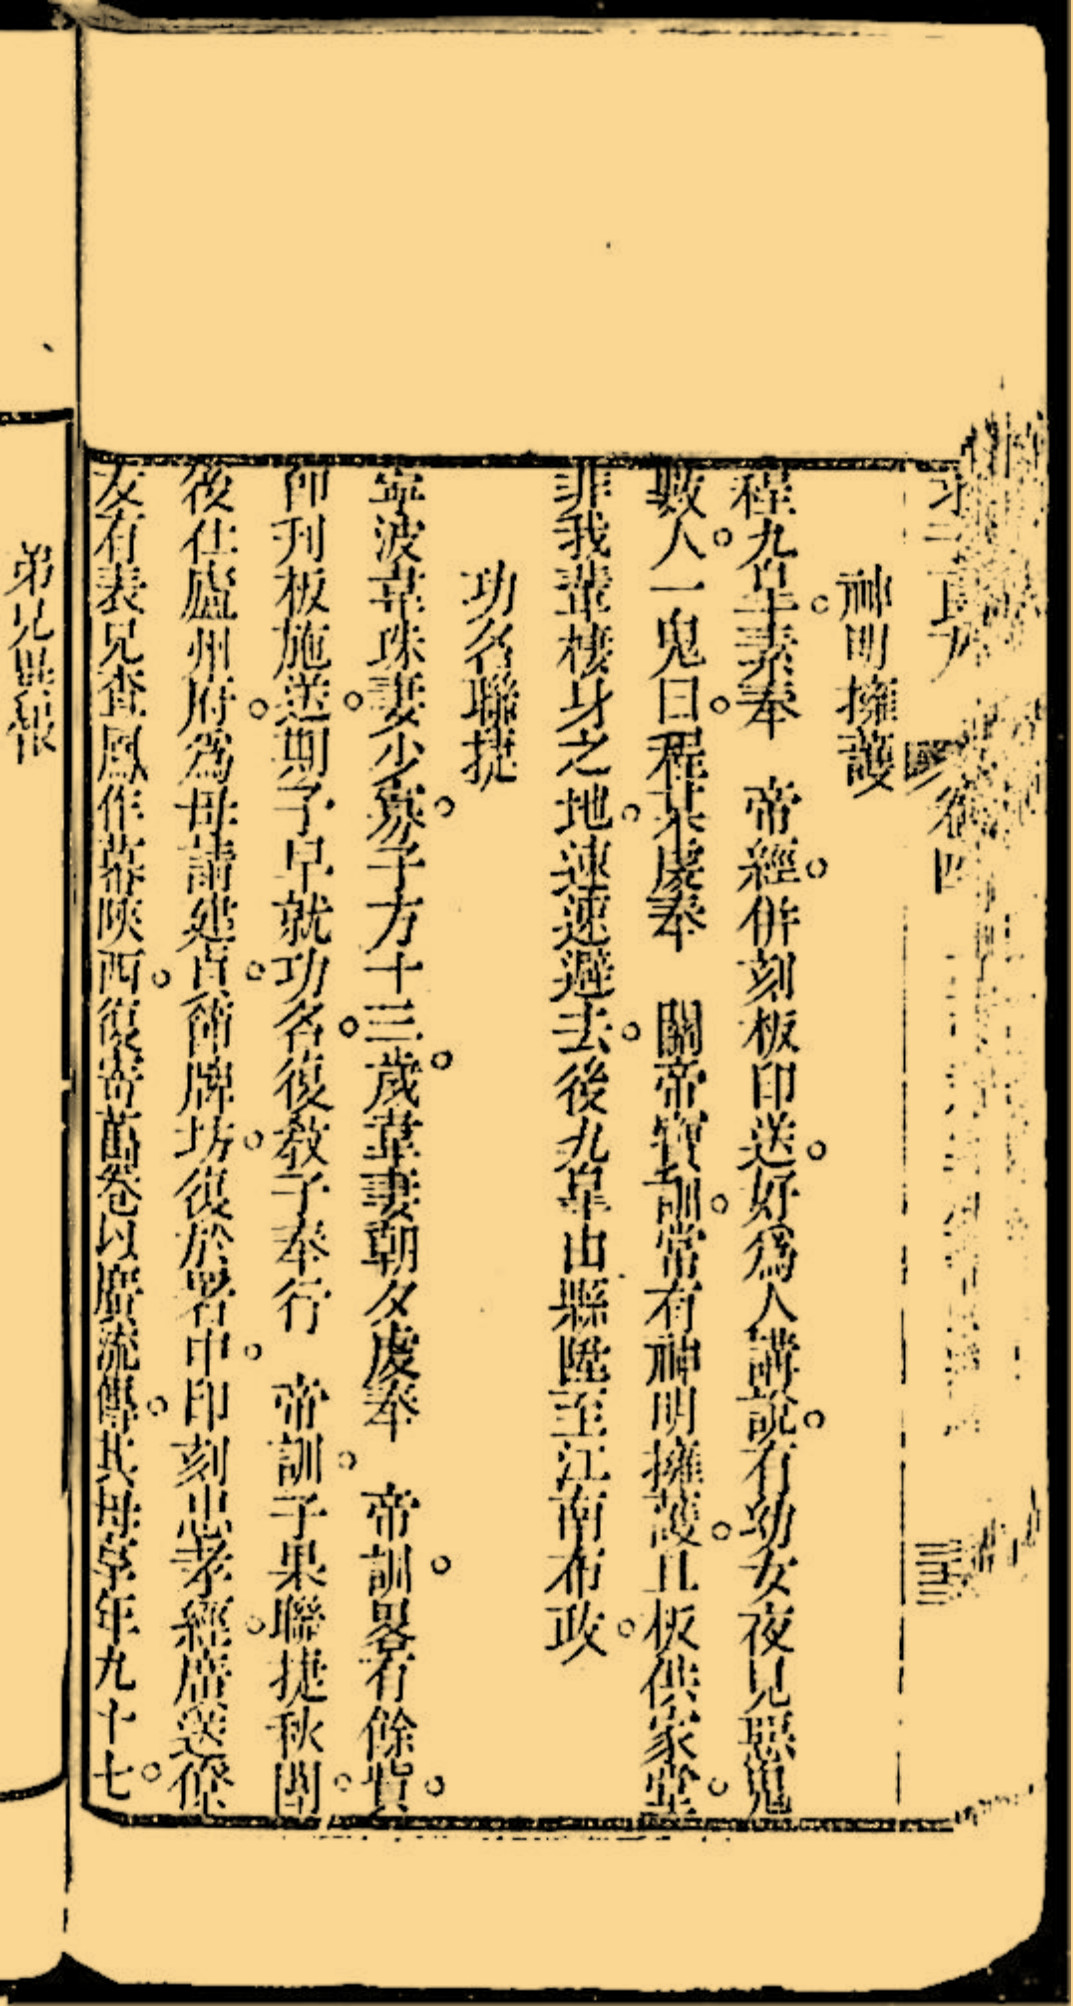 卷四
神明擁護
程九臯素奉　帝經併刻板印送好爲人講說有幼女夜見惡鬼
數人一鬼曰程某虔奉　關帝寶訓常有神明擁護且板供家堂
非我輩棲身之地速速避去後九臯由縣陞至江南布政
功名聯捷
寧波韋珠妻少寡子方十三歲韋妻朝夕虔奉　帝訓畧有餘貲
卽刊板施送期子早就功名復敎子奉行　帝訓子果聯捷秋闈
後仕廬州府爲母請建貞節牌坊復於署中印刻忠孝經廣送僚
友有表兄查鳳作幕陝西復寄舊卷以廣流傳其母享年九十七
弟兄異報